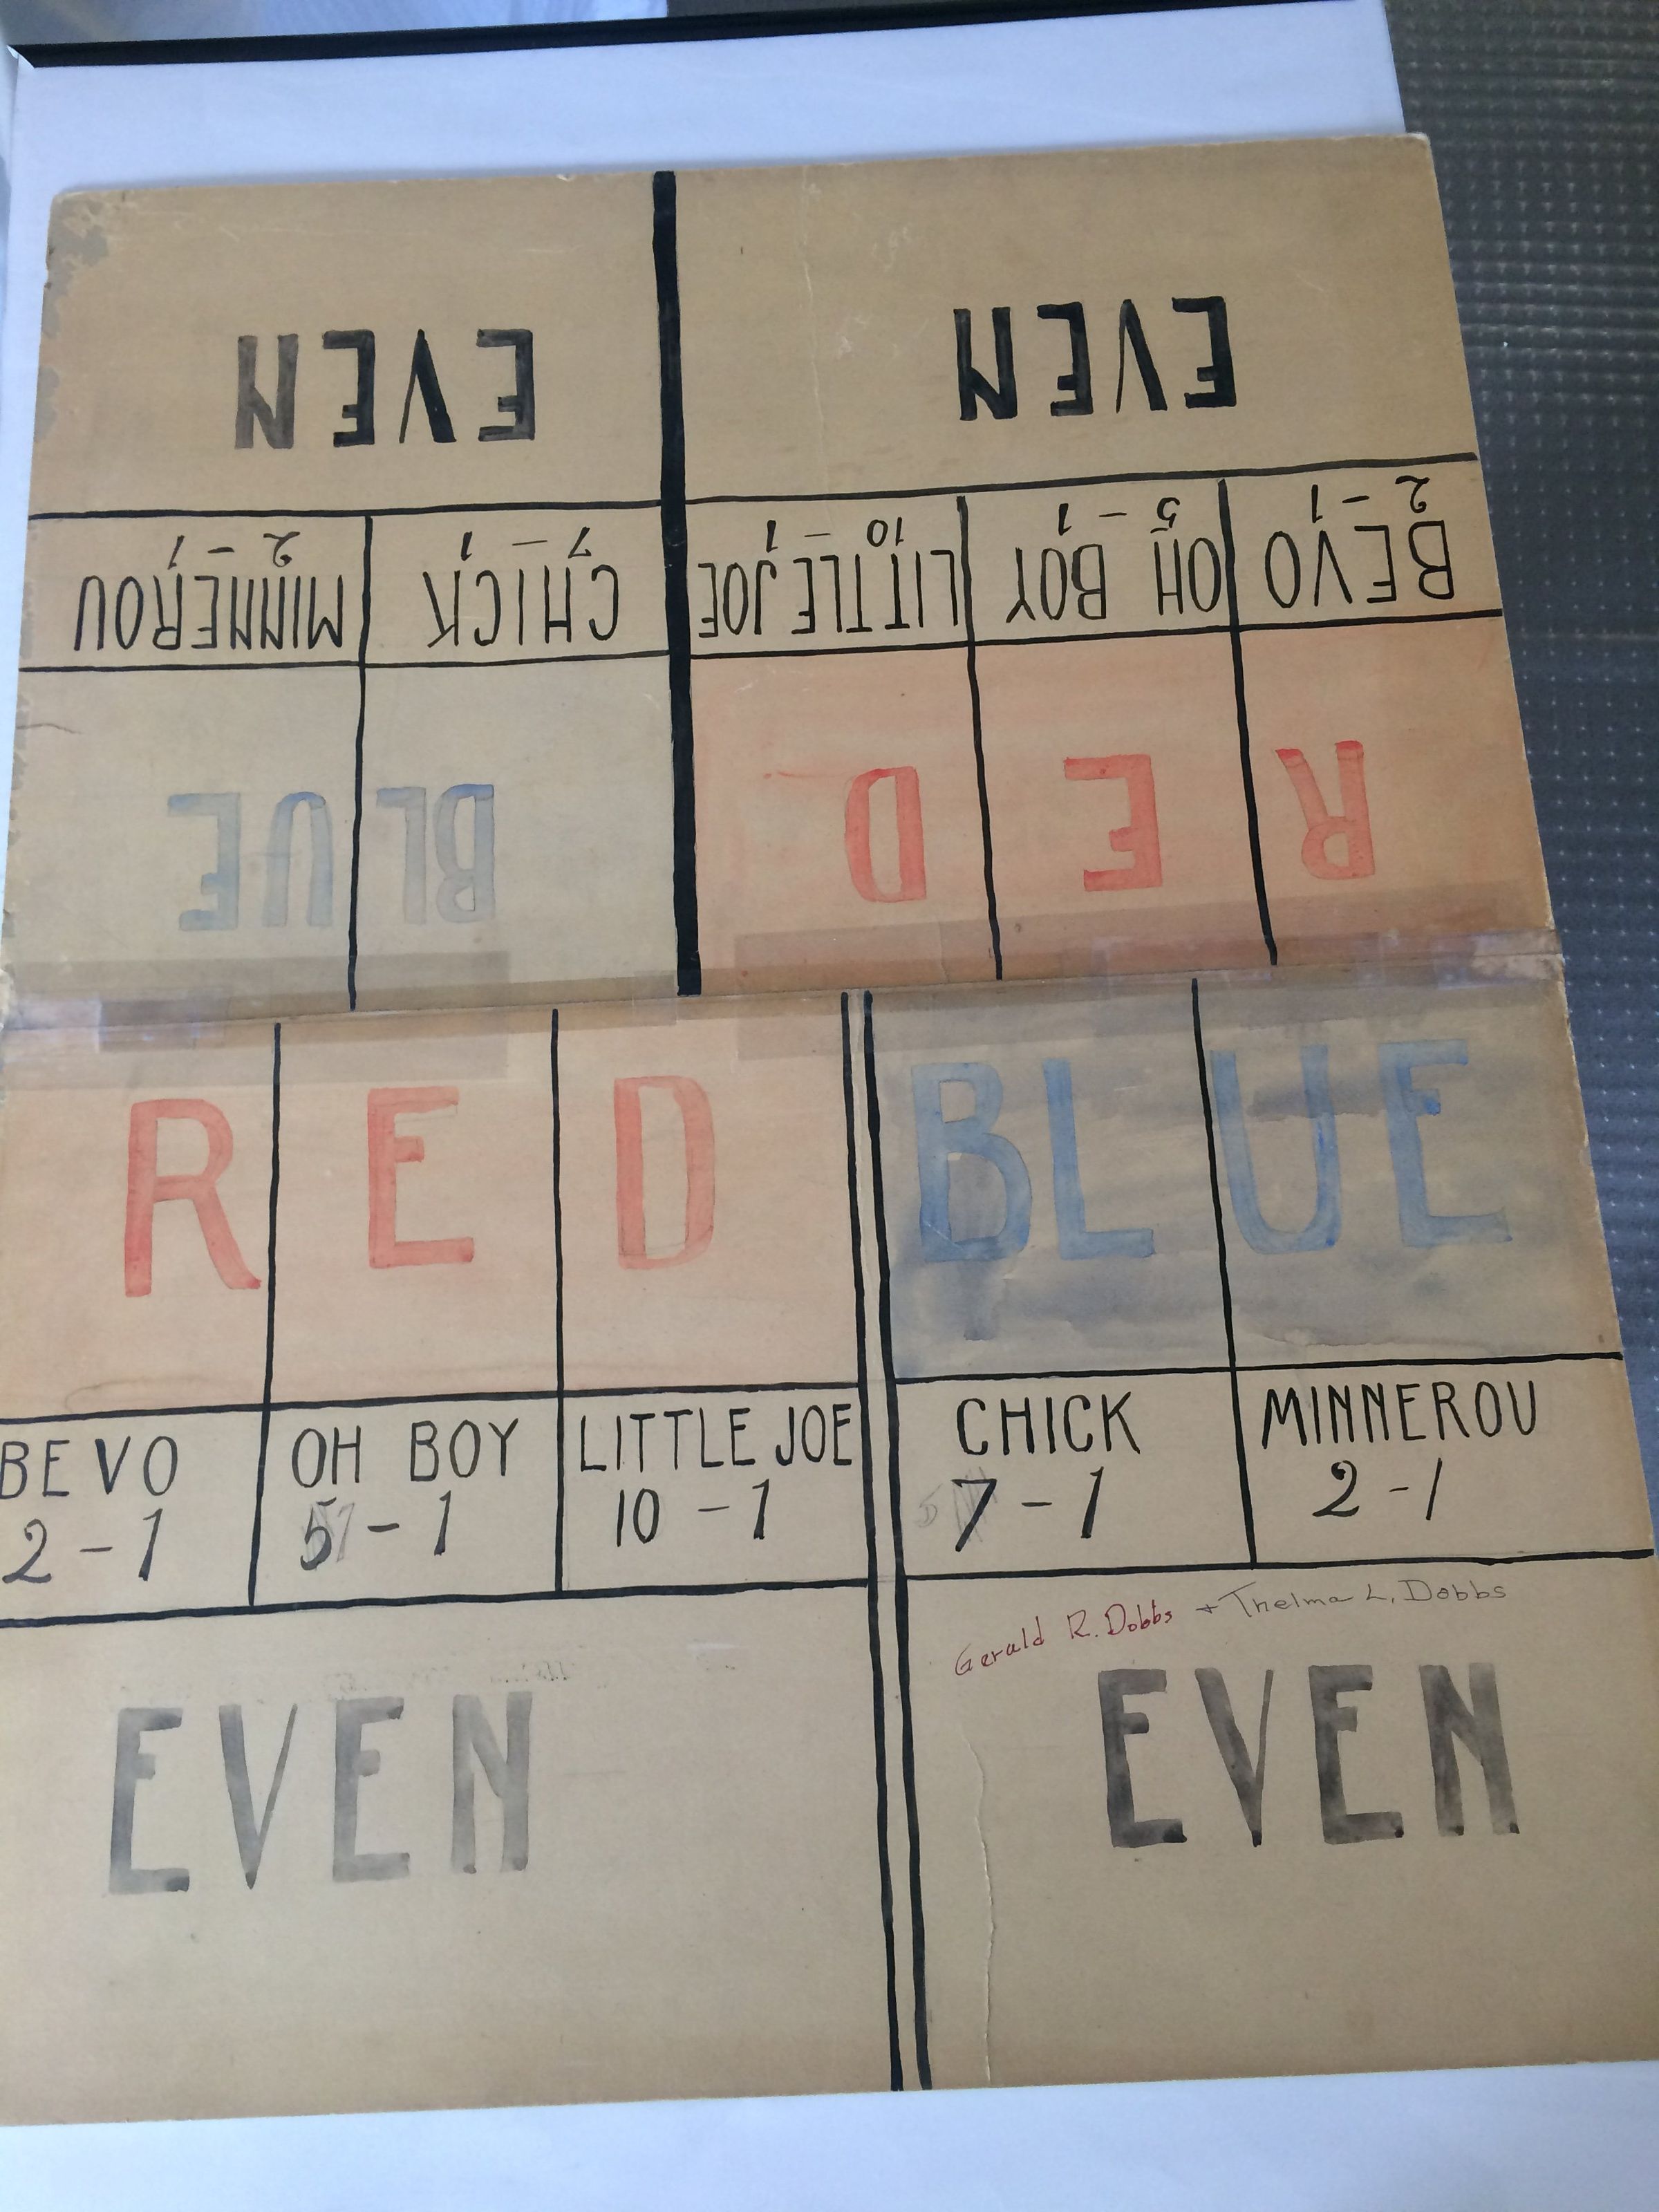 EVEN EVEN
MINNEROU CHICK LITTLE JOE OH BOY BEVO
2 - 1 7 - 1 10 - 1 5 - 1 2 - 1
BLUE RED
RED BLUE
BEVO OH BOY LITTLE JOE CHICK MINNEROU
2 - 1 5 - 1 10 - 1 7 - 1 2 - 1
Gerald R. Dobbs + Thelma L. Dobbs
EVEN EVEN